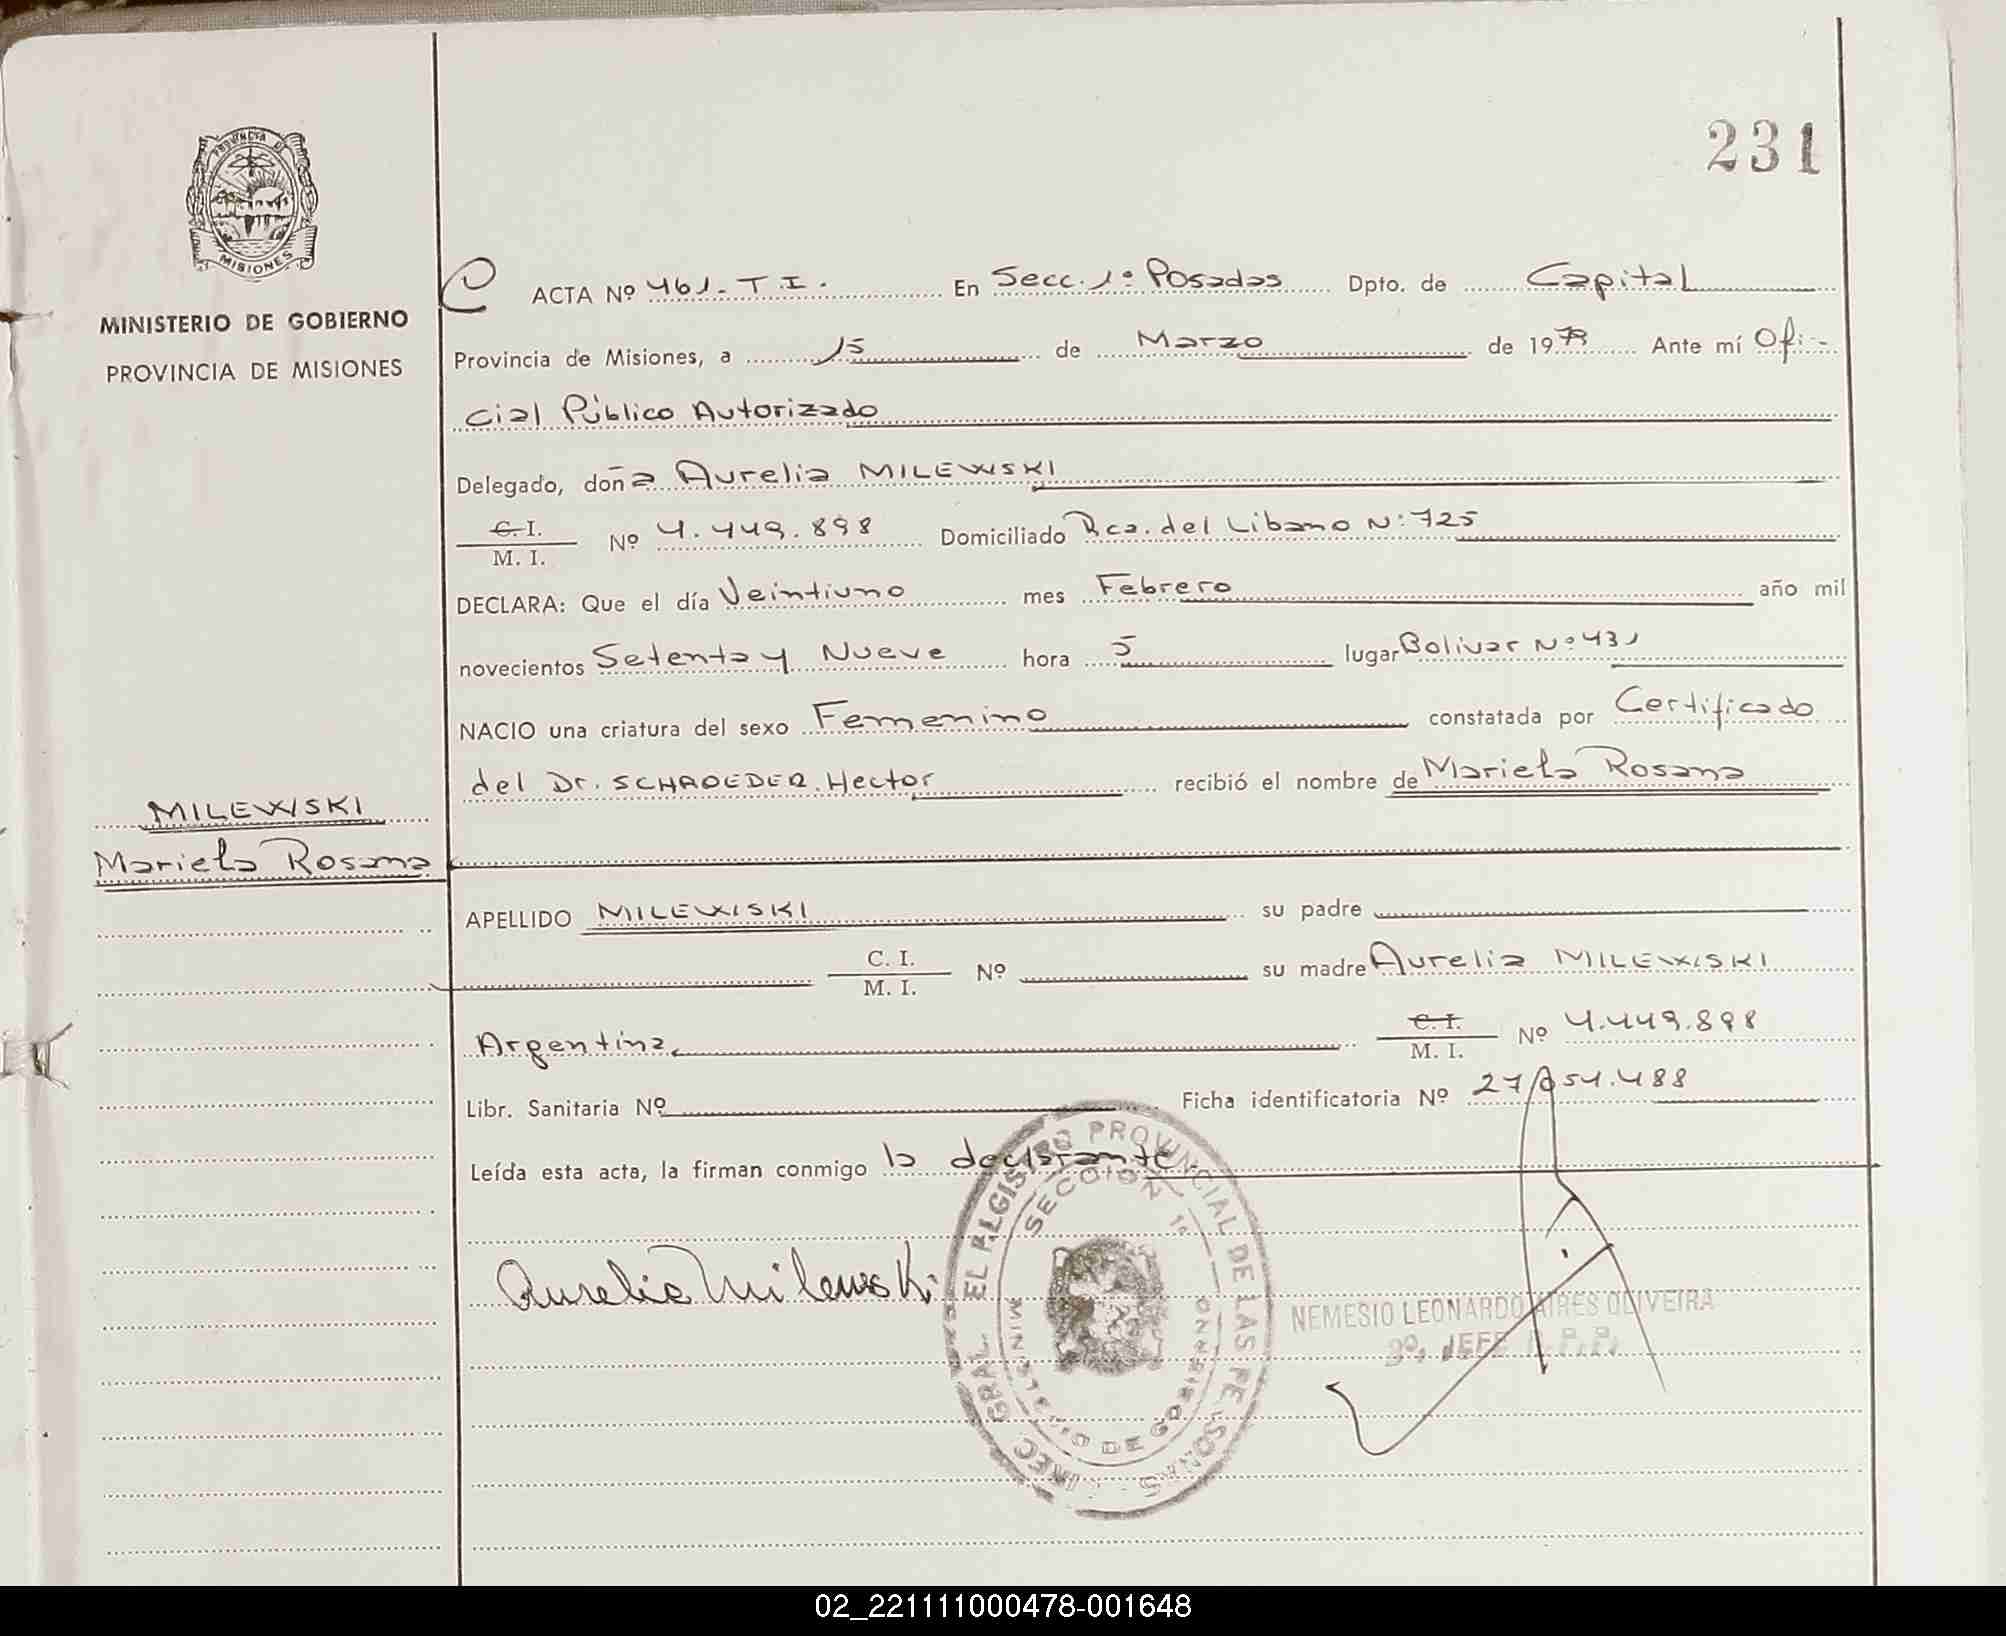 231
PROVINCIA DE
MISIONES
MINISTERIO DE GOBIERNO
PROVINCIA DE MISIONES
C ACTA Nº 461-T.I. En Secc. 1º Posadas Dpto. de Capital
Provincia de Misiones, a 15 de Marzo de 1979 Ante mí Ofi-
cial Público Autorizado
Delegado, doña Aurelia MILEWSKI
C. I.
M. I. Nº 4.449.898 Domiciliado Rca. del Libano Nº 725
DECLARA: Que el día Veintiuno mes Febrero año mil
novecientos Setenta y Nueve hora 5 lugar Bolivar Nº 431
NACIO una criatura del sexo Femenino constatada por Certificado
del Dr. SCHROEDER. Hector recibió el nombre de Mariela Rosana
MILEWSKI
Mariela Rosana
APELLIDO MILEWSKI su padre
C. I.
M. I. Nº su madre Aurelia MILEWSKI
Argentina C. I.
M. I. Nº 4.449.898
Libr. Sanitaria Nº Ficha identificatoria Nº 27.054.488
Leída esta acta, la firman conmigo la declarante
Aurelia Milewski
DIREC. GRAL. EL REGISTRO PROVINCIAL DE LAS PERSONAS
SECCION 1º
MINISTERIO DE GOBIERNO
NEMESIO LEONARDO AIRES OLIVEIRA
JEFE R.P.P.
02_221111000478-001648